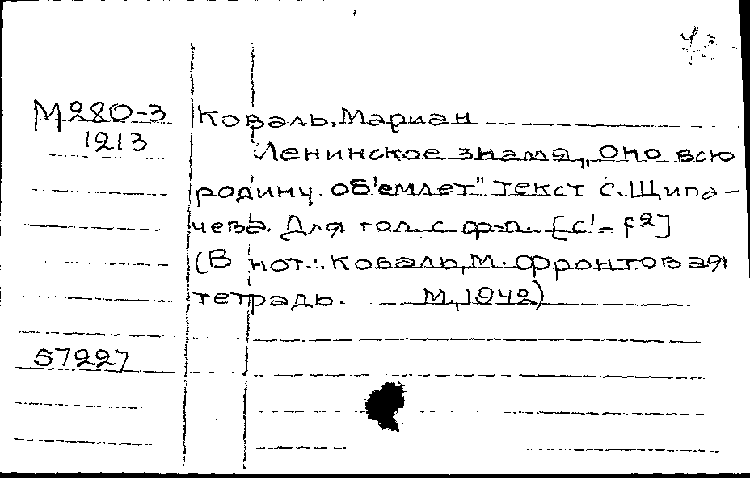 М280-3
1213
Коваль, Мариан
Ленинское знамя, „Оно всю
родину. об'емлет" текст С. Щипа-
чева. Для гол. с ф-п. [c¹-f²]
(В нот.: Коваль, М. Фронтовая
тетрадь. М, 1942)
57227